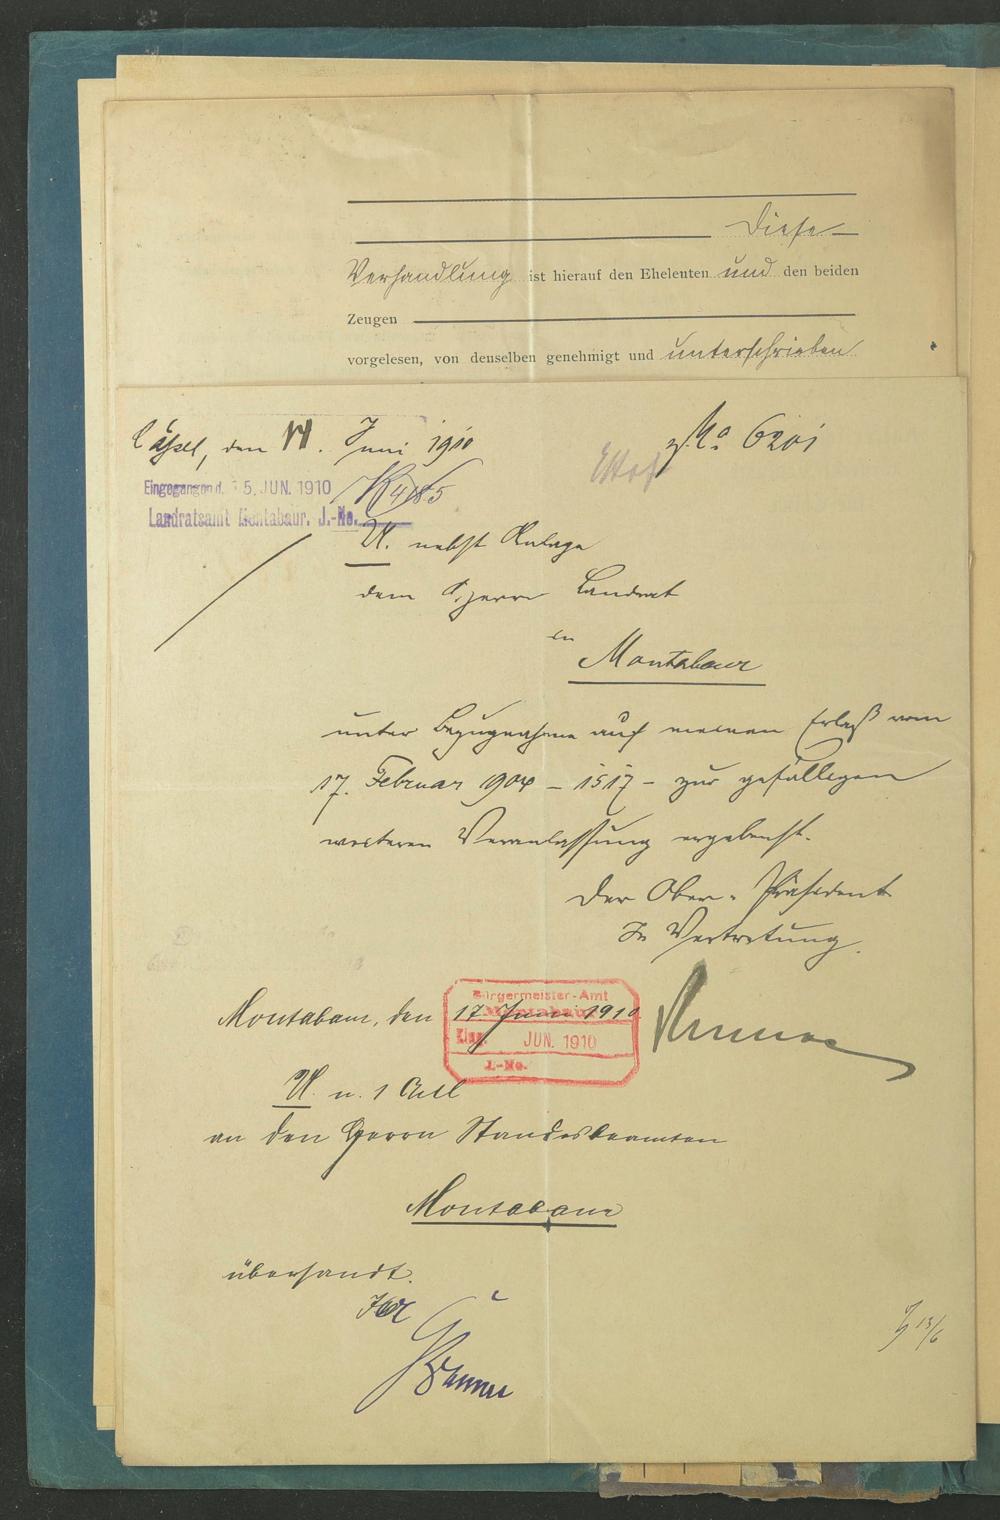 Diese
Verhandlung ist hierauf den Eheleuten und den beiden
Zeugen
vorgelesen, von denselben genehmigt und unterschrieben
Cassel, den 11. Juni 1910
No 6201
Eingegangen d. 15. JUN. 1910
K 4185
Landratsamt Montabaur. J.-No.
U. nebst Anlage
dem Herrn Landrat
in
Montabaur
unter Bezugnahme auf meinen Erlaß vom
17. Februar 1904 – 1517 – zur gefälligen
weiteren Veranlassung ergebenst.
Der Ober-Präsident
In Vertretung.
Bürgermeister-Amt
Montabaur
Montabaur, den 17 Juni 1910
Eing. JUN. 1910
J.-No.
U. n. 1 Anl
an den Herrn Standesbeamten
Montabaur
übersandt.
13/6